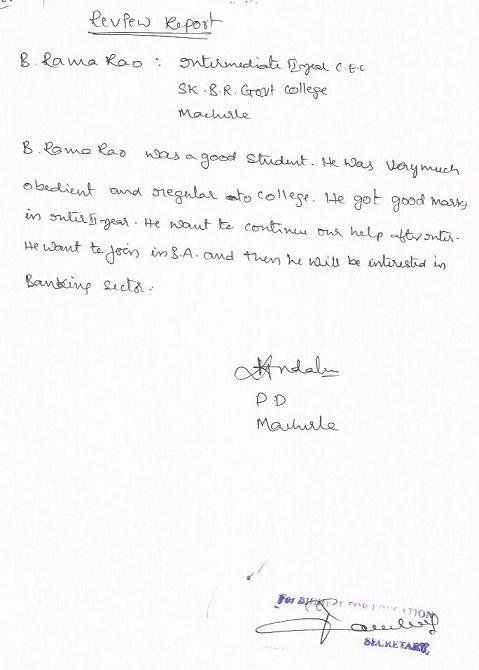 Review Report
B. Rama Rao : Intermediate II year C.E.C
SK.B.R. Govt College
Macherla
B. Rama Rao was a good student. He was very much
obedient and regular to college. He got good marks
in inter II year. He want to continue our help after inter.
He want to join in B.A. and then he will be interested in
Banking sector.
P D
Macherla
For EDUCATION
SECRETARY